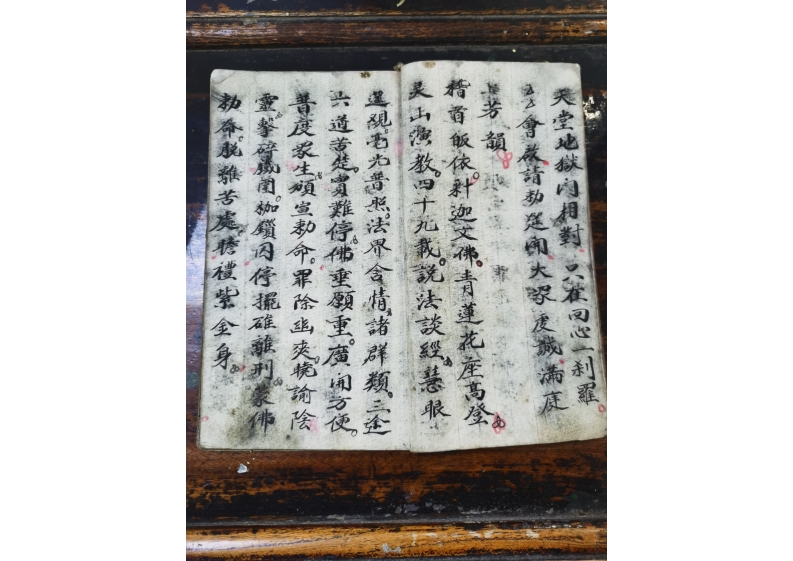 天堂地獄门相對只在回心一刹羅
會啟請勅筵開大眾虔誠满庭
芳韻
稽首皈依釈迦文佛青蓮花座高登
灵山演教四十九載説法談經慧眼
遥覌毛光普照法界含情諸群類三途
六道苦楚實難停佛垂願重廣開方便
普度眾生頒宣勅命罪除幽爽曉諭陰
靈擊碎鉄圍枷鎖囚停擺碓離刑蒙佛
勅命脱離苦處瞻禮紫金身